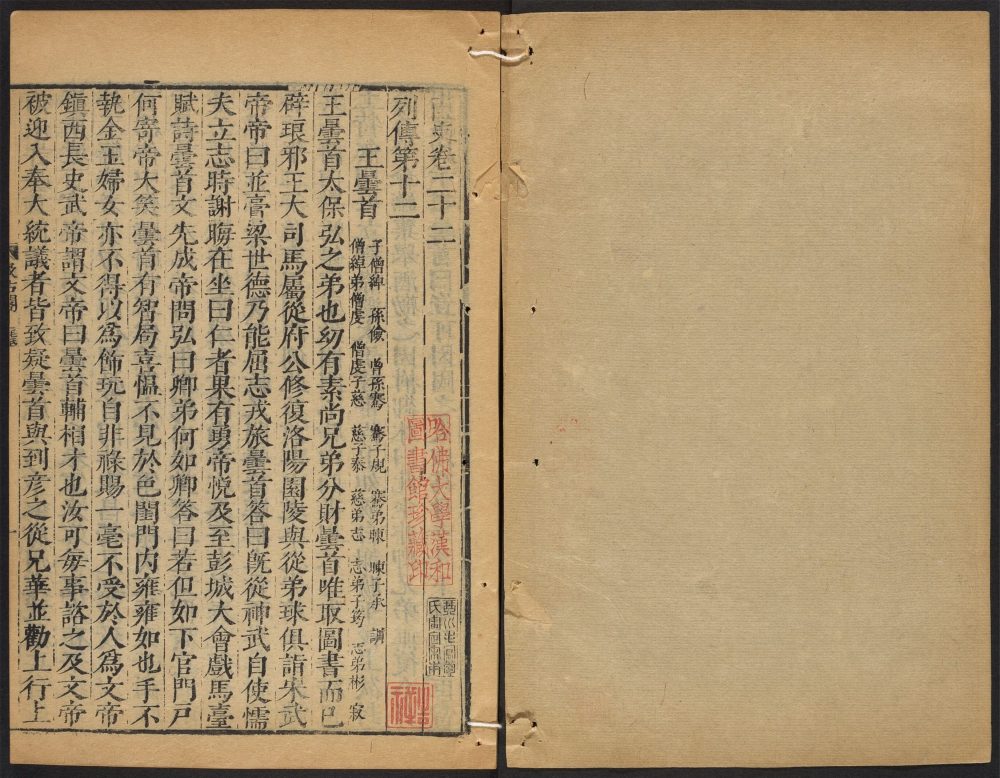 南史卷二十二
列傳第十二
王曇首 子僧綽 孫儉 曾孫騫 騫子規 騫弟暕 暕子承 訓
僧綽弟僧虔 僧虔子慈 慈子泰 慈弟志 志弟子筠 志弟彬 寂
王曇首太保弘之弟也幼有素尚兄弟分財曇首唯取圖書而已
辟琅邪王大司馬屬從府公修復洛陽園陵與從弟球俱詣宋武
帝帝曰並膏粱世德乃能屈志戎旅曇首答曰既從神武自使懦
夫立志時謝晦在坐曰仁者果有勇帝悅及至彭城大會戲馬臺
賦詩曇首文先成帝問弘曰卿弟何如卿答曰若但如下官門戶
何寄帝大笑曇首有智局喜慍不見於色閨門內雍雍如也手不
執金玉婦女亦不得以為飾玩自非祿賜一毫不受於人為文帝
鎮西長史武帝謂文帝曰曇首輔相才也汝可每事諮之及文帝
被迎入奉大統議者皆致疑曇首與到彥之從兄華並勸上行上
汲古閣
哈佛大學漢和
圖書館珍藏印